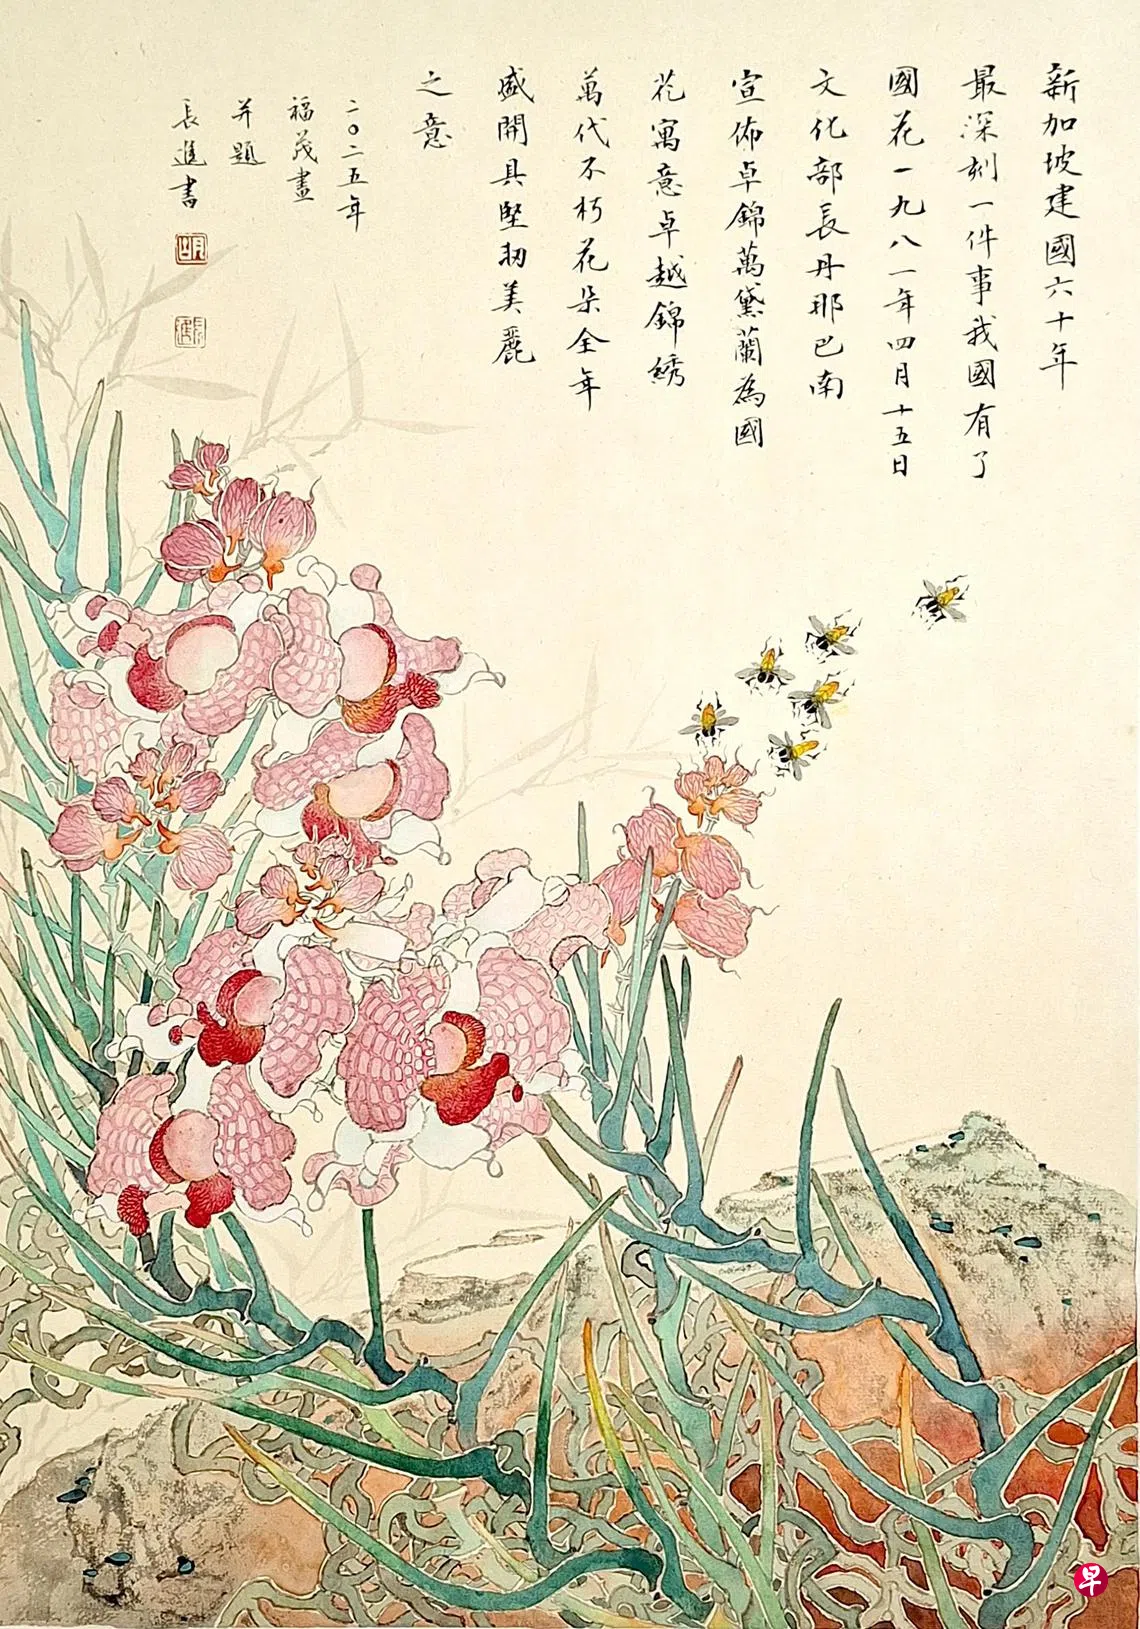 新加坡建國六十年
最深刻一件事我國有了
國花一九八一年四月十五日
文化部長丹那巴南
宣佈卓錦萬黛蘭為國
花寓意卓越錦綉
萬代不朽花朵全年
盛開具堅韧美麗
之意
二〇二五年
福茂畫
并題
長進書
早